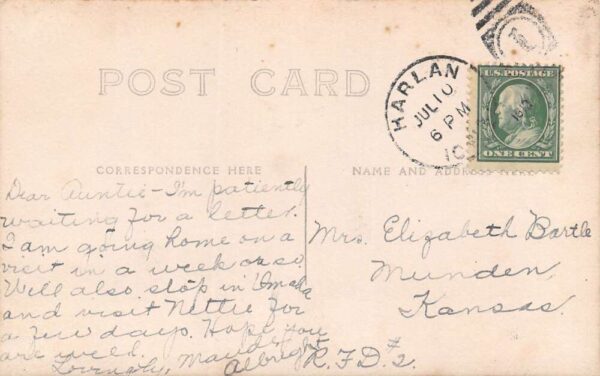 POST CARD
HARLAN
JUL 10
6 PM
U.S. POSTAGE
ONE CENT
CORRESPONDENCE HERE
NAME AND ADDRESS HERE
Dear Auntie - I'm patiently
waiting for a letter.
I am going home on a
visit in a week or so
Will also stop in Omaha
and visit Nettie for
a few days. Hope you
are well.
Lovingly, Maude
Albright
Mrs. Elizabeth Bartle
Munden,
Kansas.
R.F.D. #2.